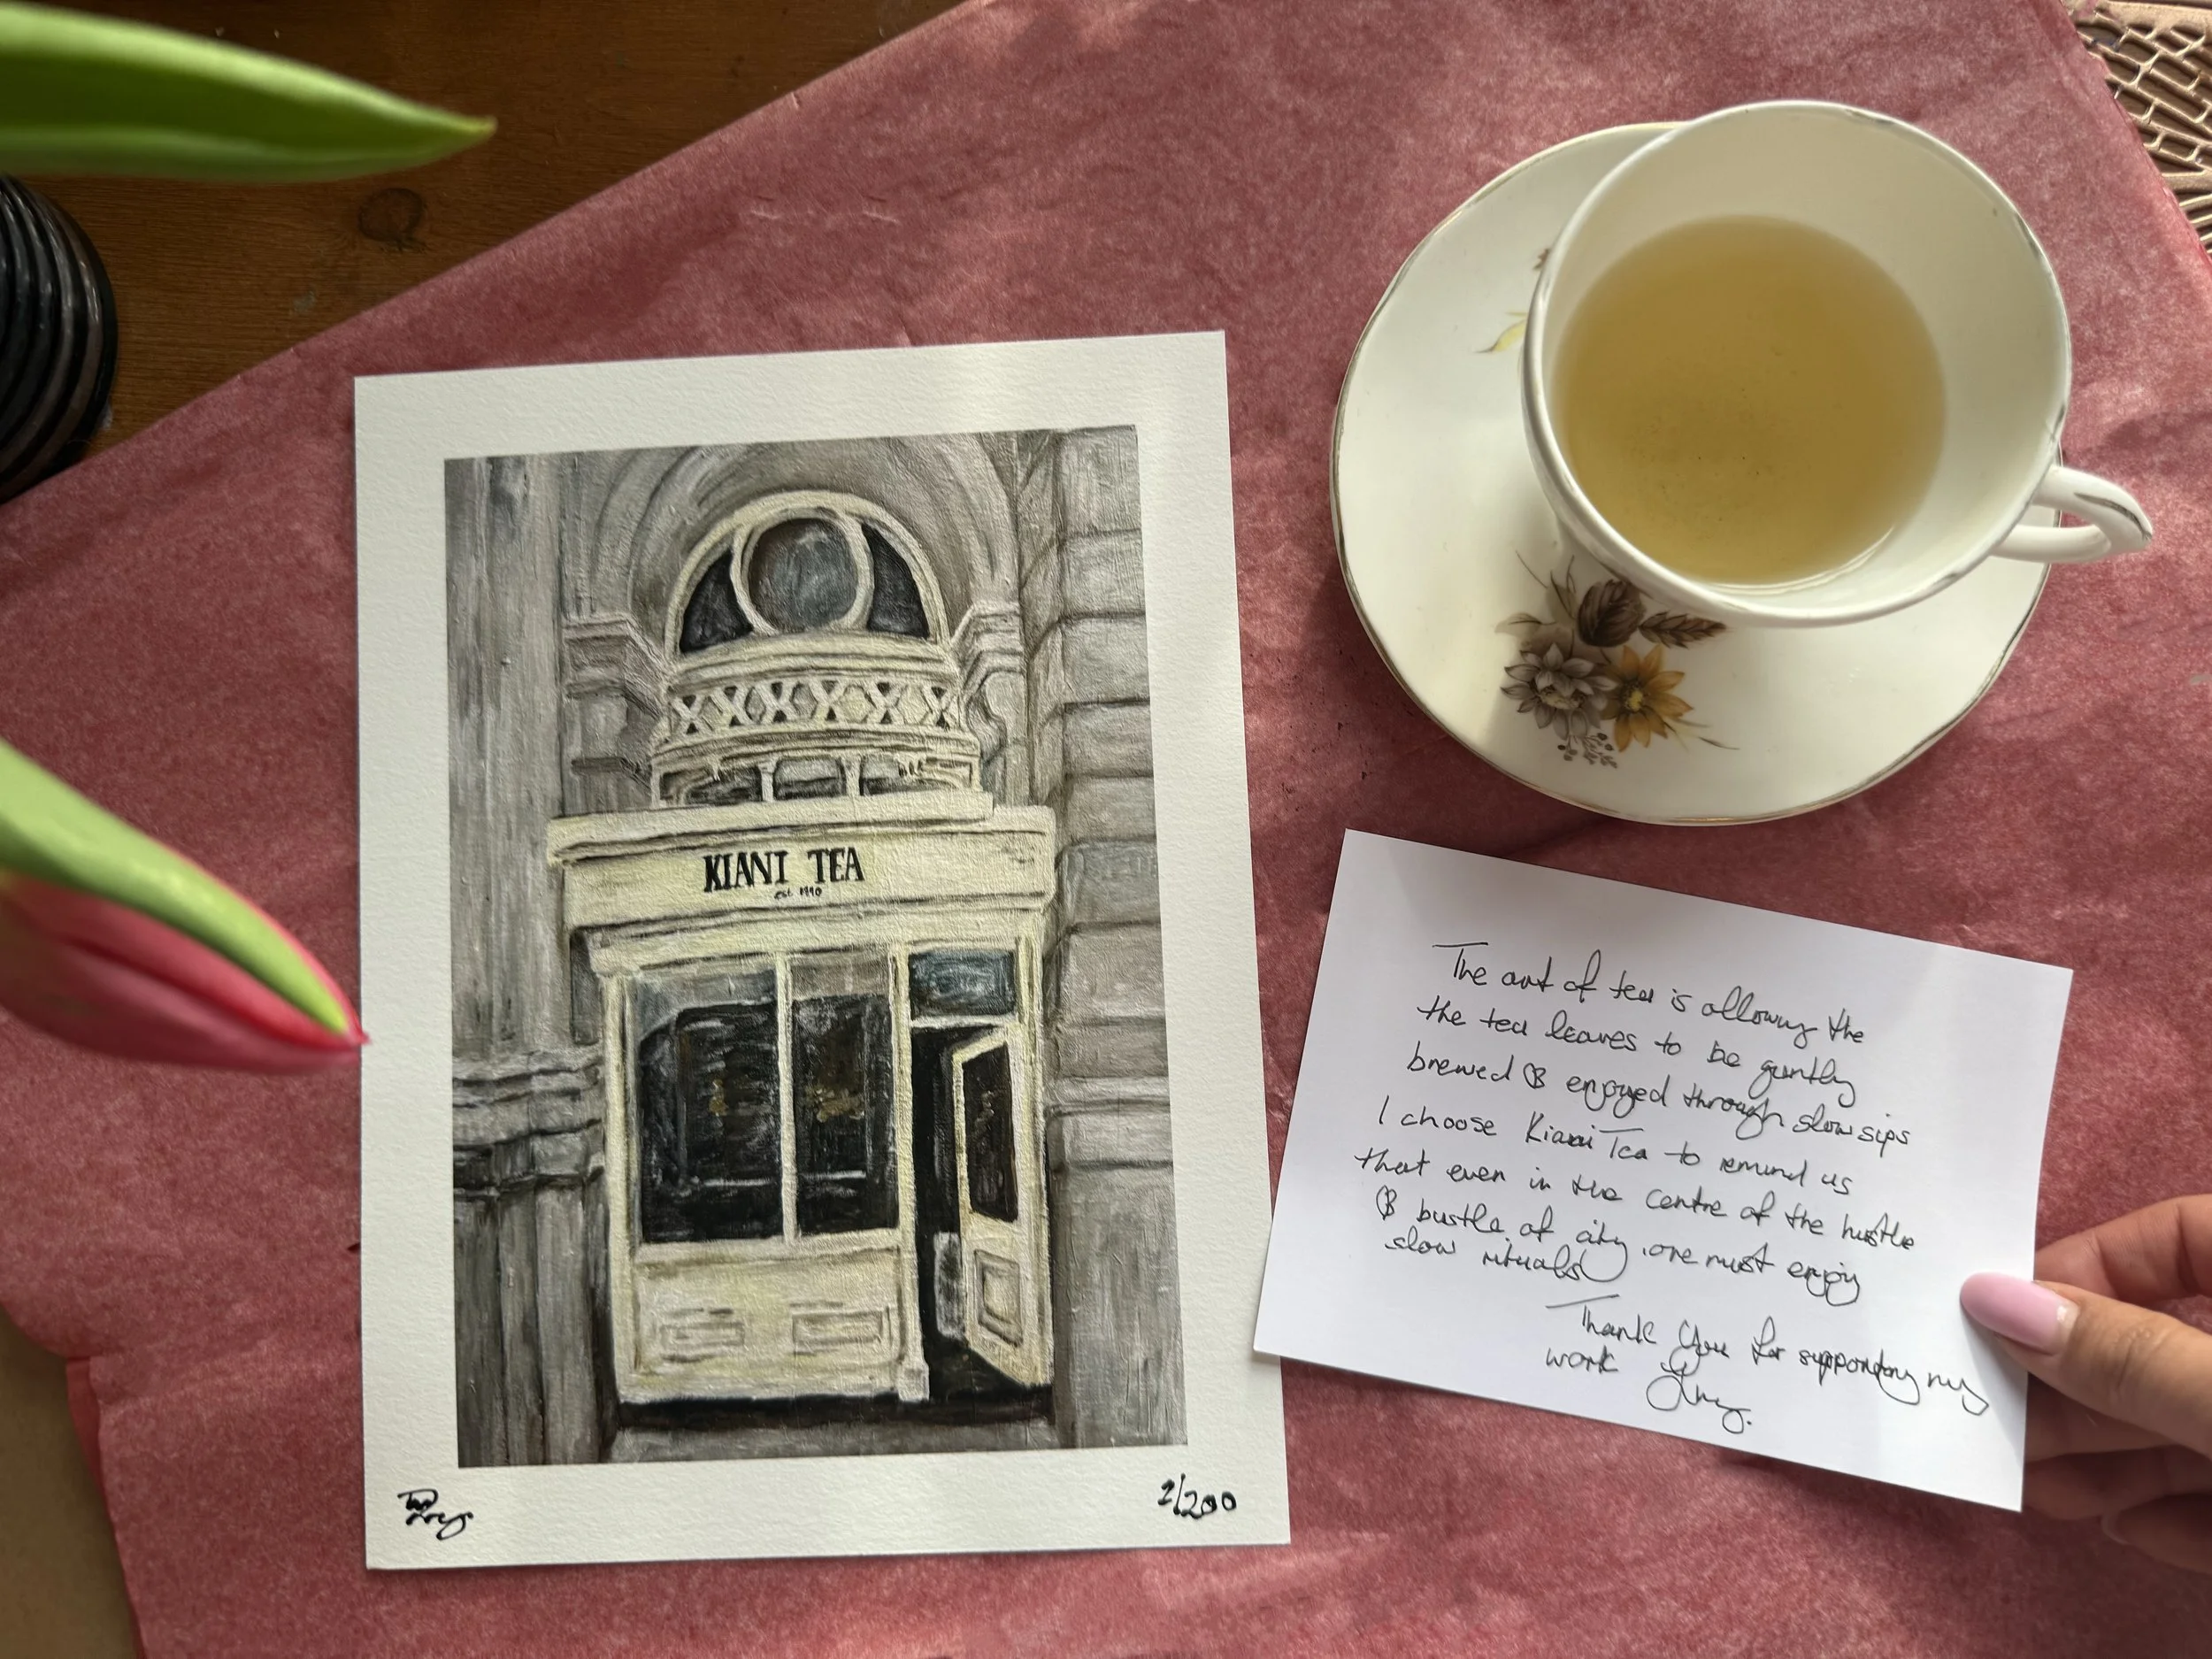 KIANI TEA
est. 1990
2/200
The art of tea is allowing the
the tea leaves to be gently
brewed & enjoyed through slow sips
I choose Kiani Tea to remind us
that even in the centre of the hustle
& bustle of city, one must enjoy
slow rituals
Thank you for supporting my
work